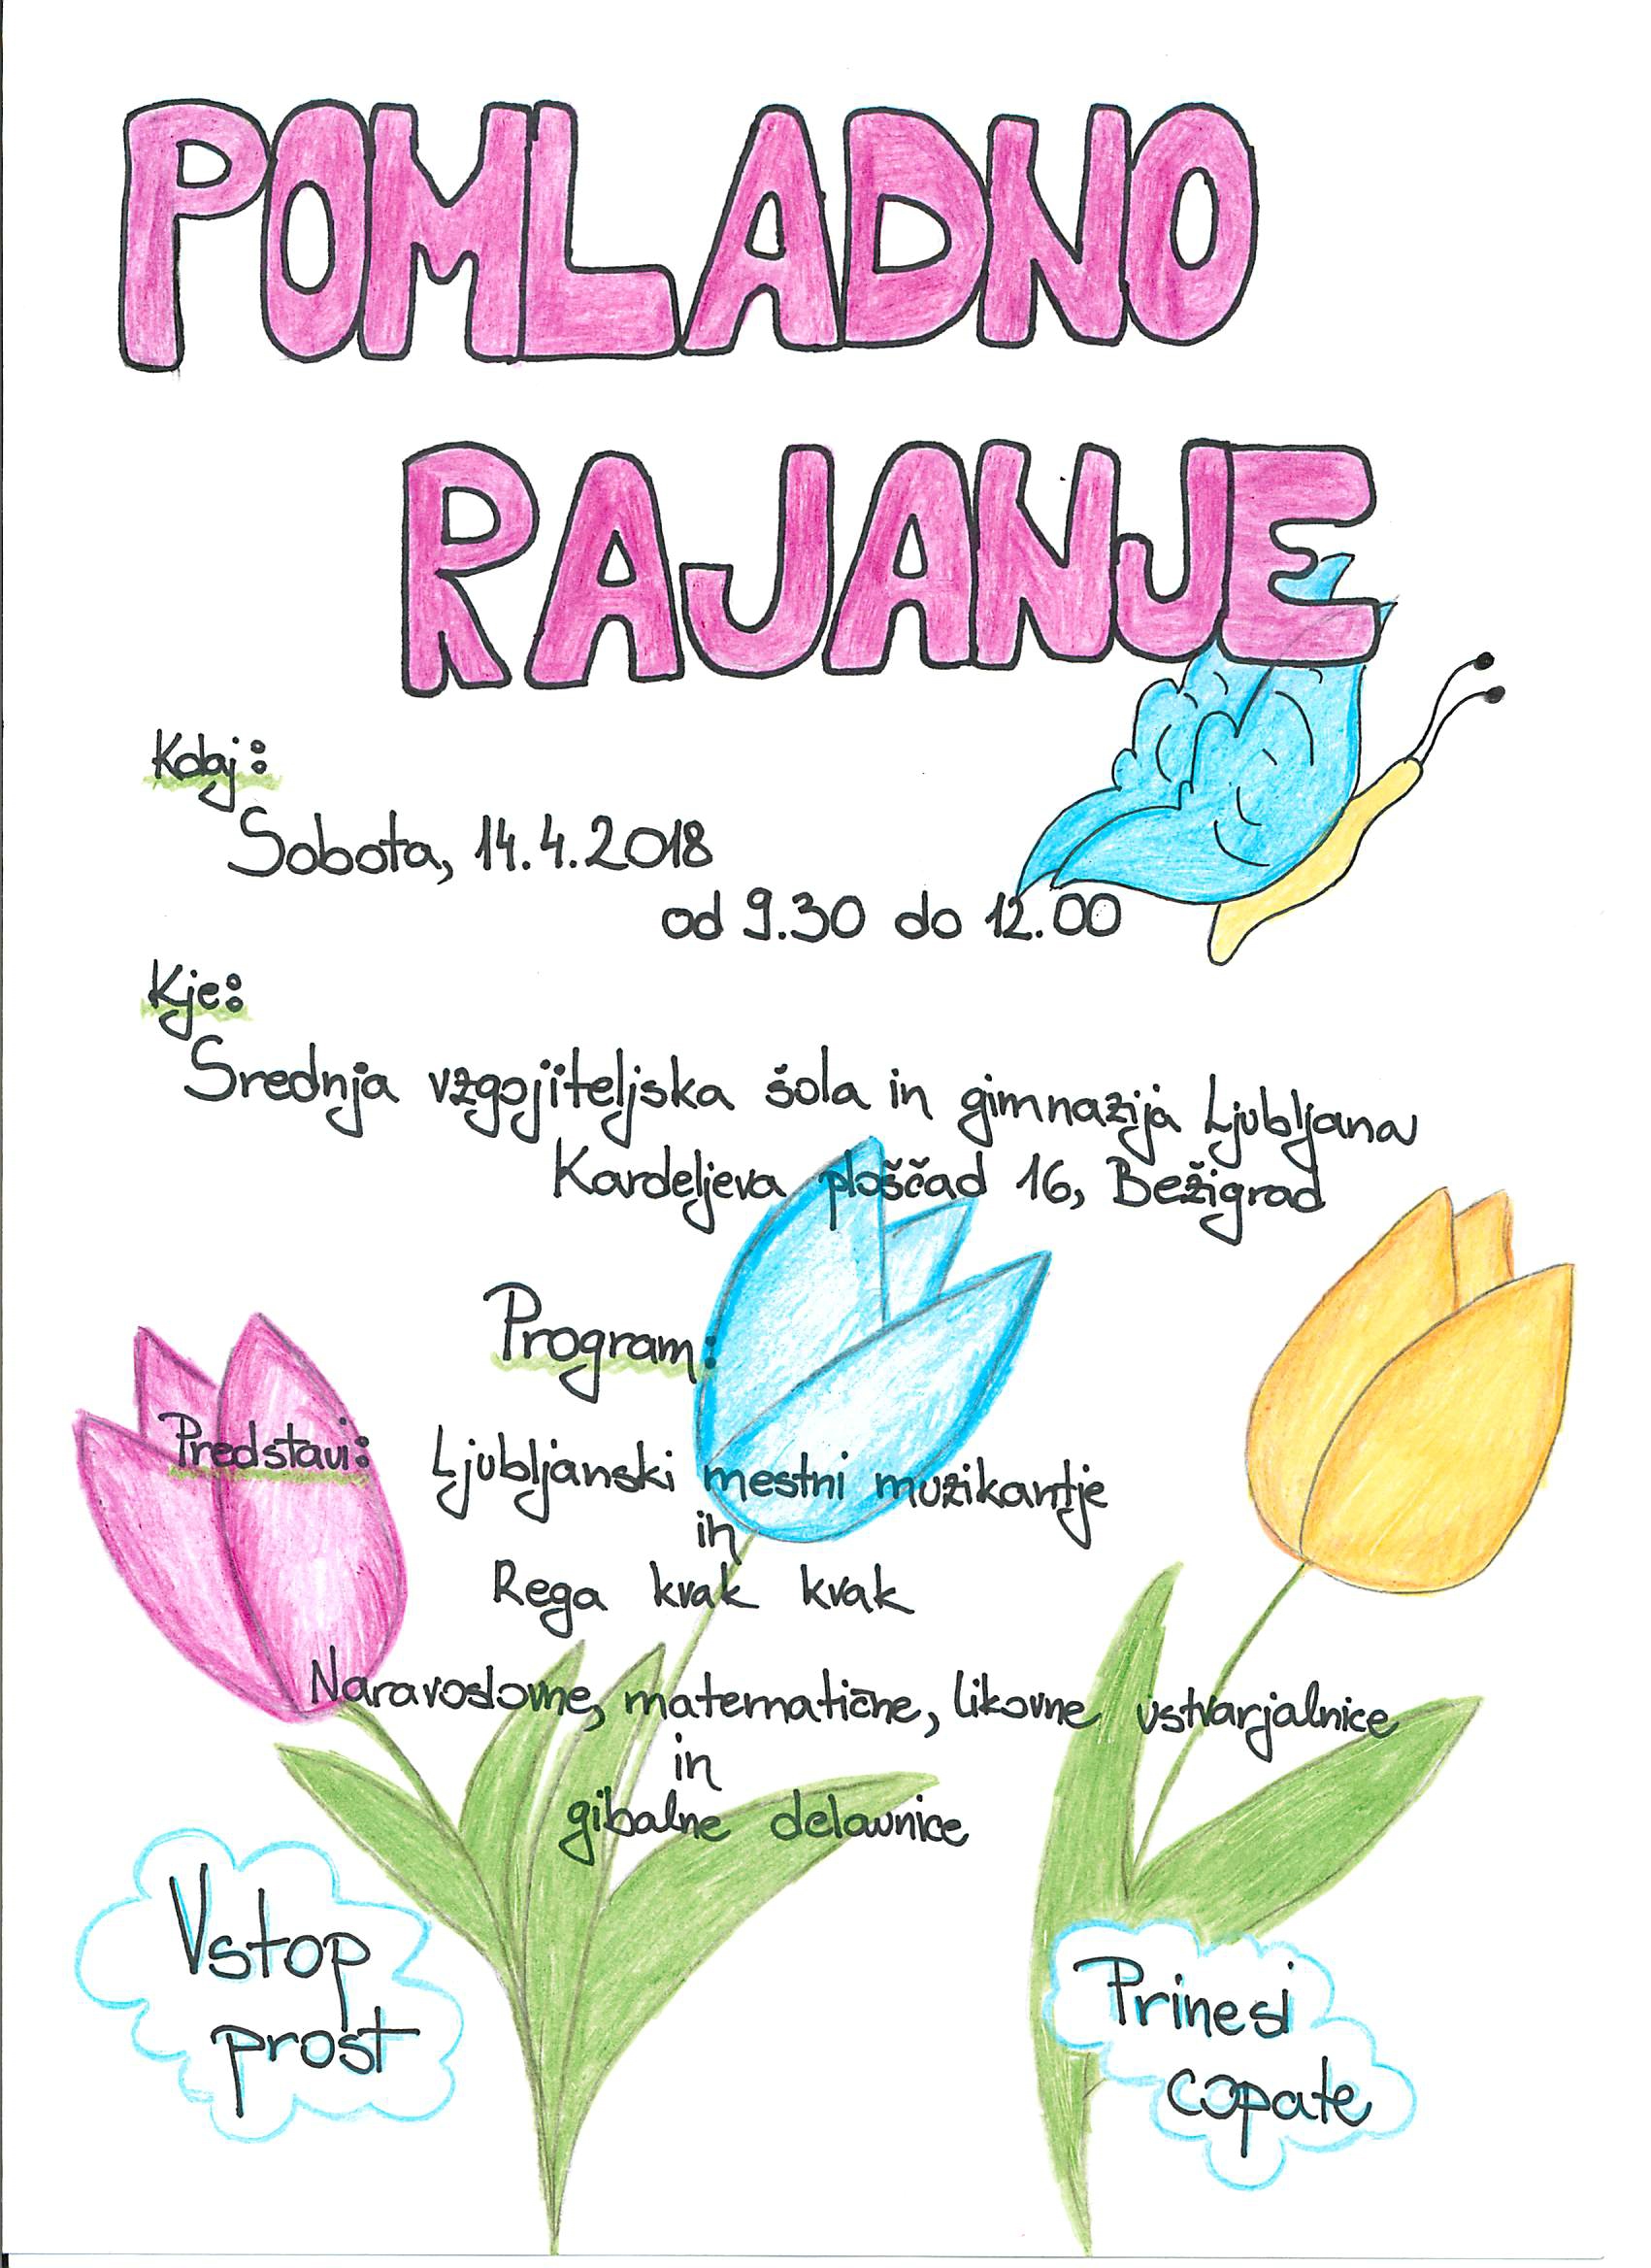 POMLADNO
RAJANJE
Kdaj:
Sobota, 14.4.2018
od 9.30 do 12.00
Kje:
Srednja vzgojiteljska šola in gimnazija Ljubljana
Kardeljeva ploščad 16, Bežigrad
Program:
Predstavi: Ljubljanski mestni muzikantje
in
Rega kvak kvak
Naravoslovne, matematične, likovne ustvarjalnice
in
gibalne delavnice
Vstop
prost
Prinesi
copate